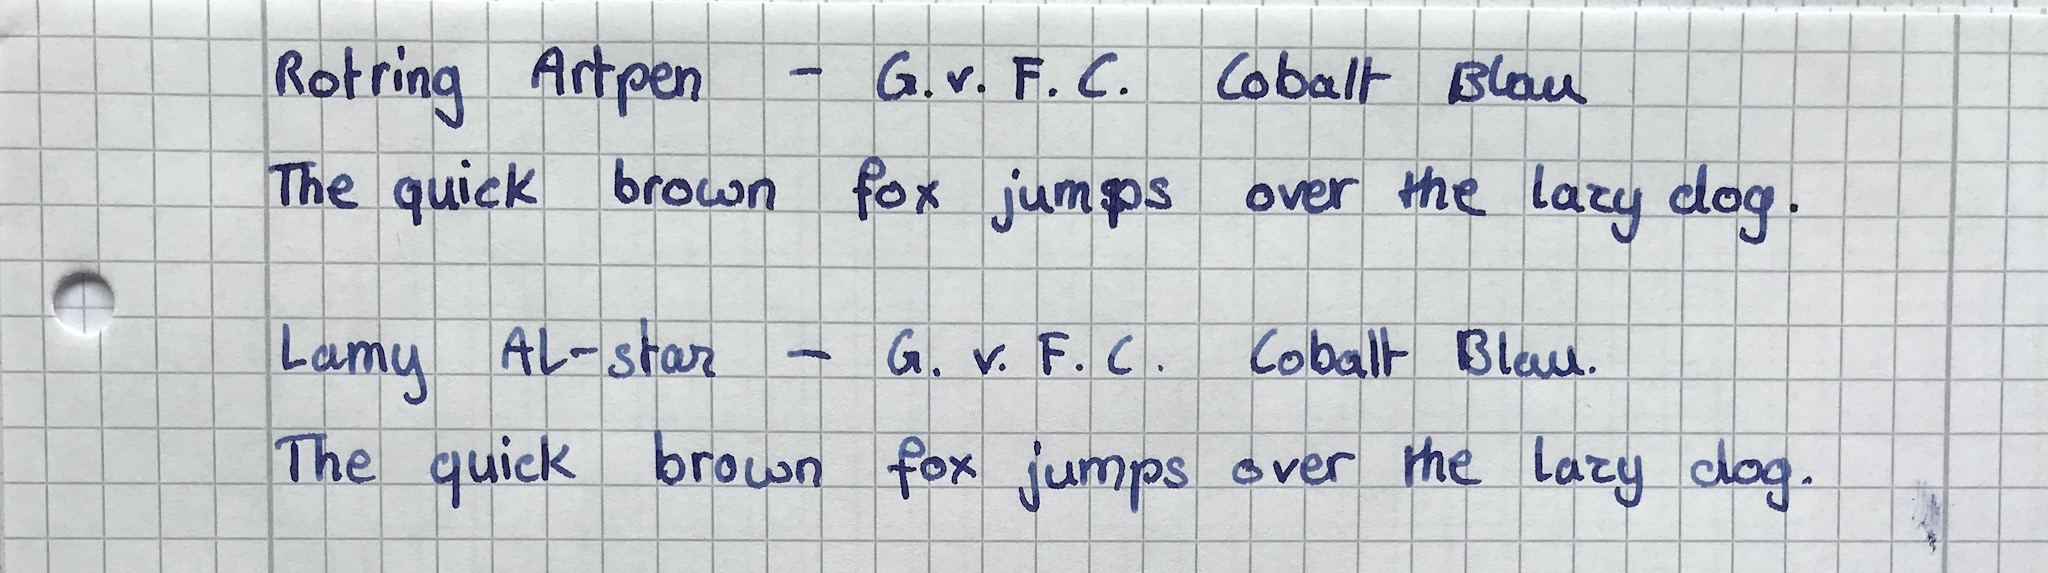 Rotring Artpen - G.v. F. C. Cobalt Blau
The quick brown fox jumps over the lazy dog.
Lamy AL-star - G. v. F. C. Cobalt Blau.
The quick brown fox jumps over the lazy dog.